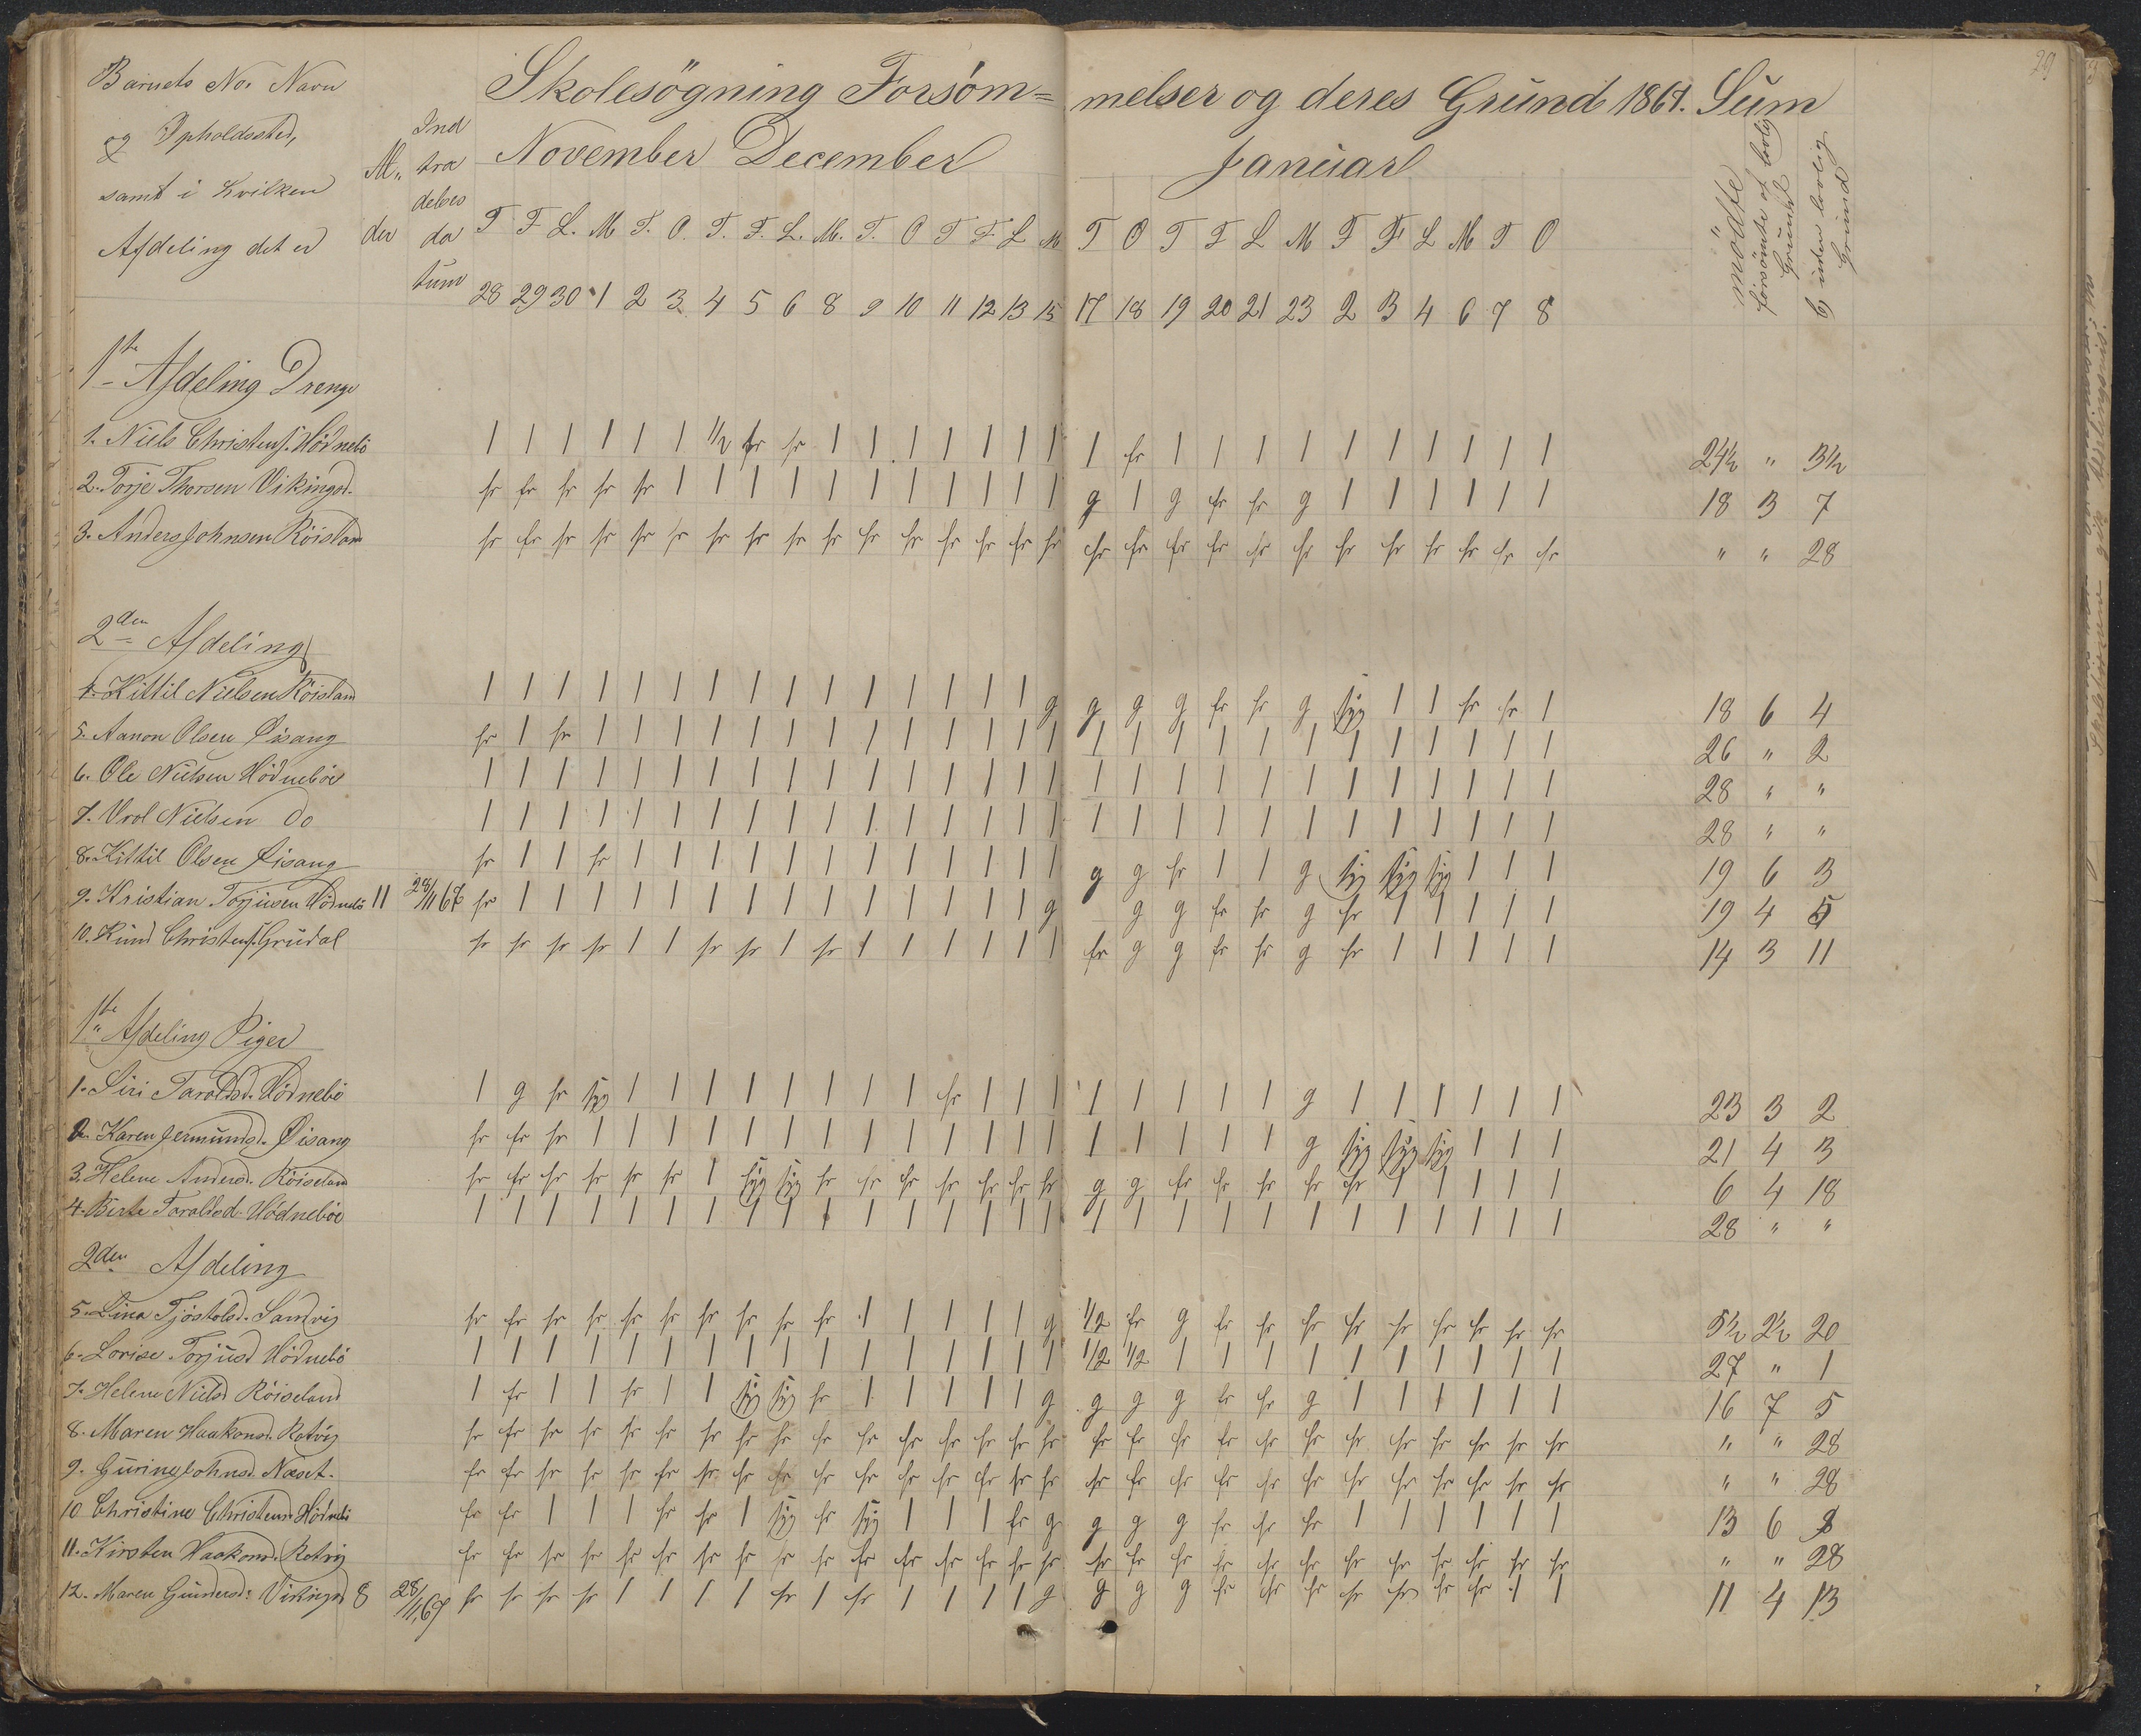 29
Skolesögning Forsøm= melser og deres Grund 1867. Sum
Barnets No. Navn
og Opholdssted,
samt i hvilken
Afdeling det er
Ind
tra
delses
da
tum
November December Januar
mödte
forsömte af lovlig Grund
uden lovlig Grund
T F L. M T. O. T. F. L. M. T. O T F L M T O T F L M T F L M T O
28 29 30 1 2 3 4 5 6 8 9 10 11 12 13 15 17 18 19 20 21 23 2 3 4 6 7 8
1ste Afdeling Drenge
1. Niels Christens. Hödnebö 1 1 1 1 1 1 1/2 fr fr 1 1 1 1 1 1 1 1 fr 1 1 1 1 1 1 1 1 1 1 24½ " 3½
2. Torje Thorsen Vikingsd. fr fr fr fr fr 1 1 1 1 1 1 1 1 1 1 1 g 1 g fr fr g 1 1 1 1 1 1 18 3 7
3. Anders Johnsen Röisland fr fr fr fr fr fr fr fr fr fr fr fr fr fr fr fr fr fr fr fr fr fr fr fr fr fr fr fr " " 28
2den Afdeling
4. Kittil Nielsen Röisland 1 1 1 1 1 1 1 1 1 1 1 1 1 1 1 g g g g fr fr g syg 1 1 fr fr 1 18 6 4
5. Aanon Olsen Öisang fr 1 fr 1 1 1 1 1 1 1 1 1 1 1 1 1 1 1 1 1 1 1 1 1 1 1 1 1 26 " 2
6. Ole Nielsen Hödneböe 1 1 1 1 1 1 1 1 1 1 1 1 1 1 1 1 1 1 1 1 1 1 1 1 1 1 1 1 28 " "
7. Vrol Nielsen Do 1 1 1 1 1 1 1 1 1 1 1 1 1 1 1 1 1 1 1 1 1 1 1 1 1 1 1 1 28 " "
8. Kittil Olsen Öisang fr 1 1 fr 1 1 1 1 1 1 1 1 1 1 1 1 g g fr 1 1 g syg syg syg 1 1 1 19 6 3
9. Kristian Torjusen Hödnebö 11 28/11 67 fr 1 1 1 1 1 1 1 1 1 1 1 1 1 1 g g g fr fr g fr 1 1 1 1 1 19 4 5
10. Knud Christens. Grudal fr fr fr fr 1 1 fr fr 1 fr 1 1 1 1 1 1 fr g g fr fr g fr 1 1 1 1 1 14 3 11
1ste Afdeling Piger
1. Siri Taraldsd. Hödnebö 1 g fr syg 1 1 1 1 1 1 1 1 fr 1 1 1 1 1 1 1 1 g 1 1 1 1 1 1 23 3 2
2. Karen Jermunds. Öisang fr fr fr 1 1 1 1 1 1 1 1 1 1 1 1 1 1 1 1 1 1 g syg syg syg 1 1 1 21 4 3
3. Helene Andersd. Röiseland fr fr fr fr fr fr 1 syg syg fr fr fr fr fr fr fr g g fr fr fr fr fr 1 1 1 1 1 6 4 18
4. Birte Taraldsd. Hödneböe 1 1 1 1 1 1 1 1 1 1 1 1 1 1 1 1 1 1 1 1 1 1 1 1 1 1 1 1 28 " "
2den Afdeling
5. Lina Tjöstolsd. Sandvig fr fr fr fr fr fr fr fr fr fr 1 1 1 1 1 g 1/2 fr g fr fr fr fr fr fr fr fr fr 5½ 2½ 20
6. Lorise Torjusd Hödnebö 1 1 1 1 1 1 1 1 1 1 1 1 1 1 1 1 1/2 1/2 1 1 1 1 1 1 1 1 1 1 27 " 1
7. Helene Nielsd Röiseland 1 fr 1 1 fr 1 1 syg syg fr 1 1 1 1 1 g g g g fr fr g 1 1 1 1 1 1 16 7 5
8. Maren Haakonsd. Rotvig fr fr fr fr fr fr fr fr fr fr fr fr fr fr fr fr fr fr fr fr fr fr fr fr fr fr fr fr " " 28
9. Guring Johnsd. Næset. fr fr fr fr fr fr fr fr fr fr fr fr fr fr fr fr fr fr fr fr fr fr fr fr fr fr fr fr " " 28
10 Christine Christensd Hödnebö fr fr 1 1 1 fr fr 1 syg fr syg 1 1 1 fr g g g g fr fr fr 1 1 1 1 1 1 13 6 9
11. Kirsten Haakonsd. Rotvig fr fr fr fr fr fr fr fr fr fr fr fr fr fr fr fr fr fr fr fr fr fr fr fr fr fr fr fr " " 28
12. Maren Gundersd: Vikingsd 8 28/11,67 fr fr fr fr 1 1 1 1 fr 1 fr 1 1 1 1 g g g g fr fr fr fr fr fr fr 1 1 11 4 13